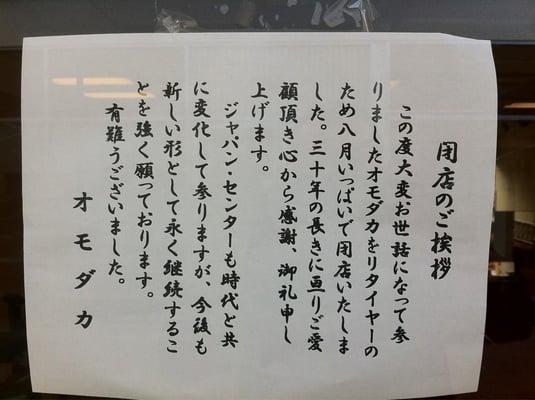 閉店のご挨拶
この度大変お世話になって参
りましたオモダカをリタイヤーの
ため八月いっぱいで閉店いたしま
した。三十年の長きに亘りご愛
顧頂き心から感謝、御礼申し
上げます。
ジャパン・センターも時代と共
に変化して参りますが、今後も
新しい形として永く継続するこ
とを強く願っております。
有難うございました。
オモダカ